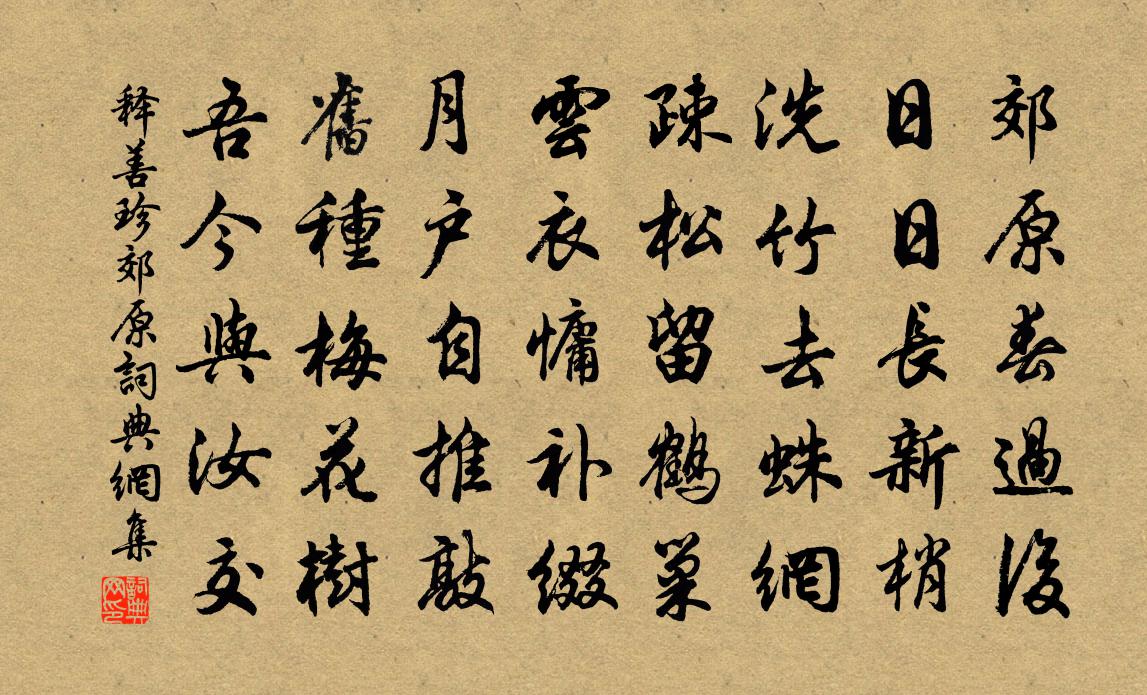 郊原春過後
日日長新梢
洗竹去蛛網
疎松留鶴巢
雲衣慵补綴
月户自推敲
舊種梅花樹
吾今與汝交
释善珍郊原詞典網集
詞典网印